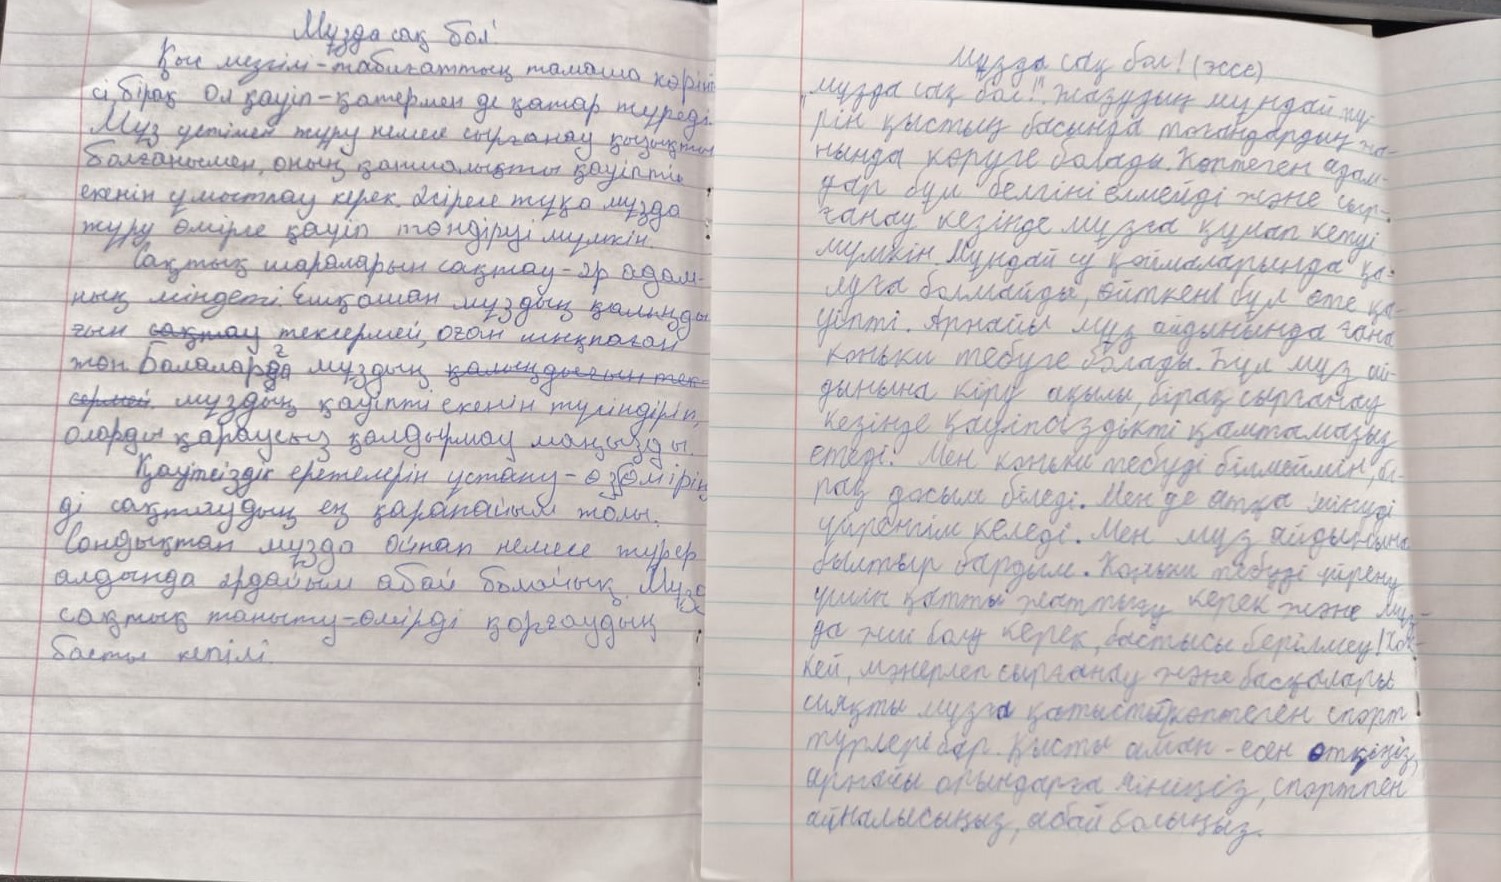 Мұзда сақ бол!
Қыс мезгілі-табиғаттың тамаша көріні-
сі, бірақ ол қауіп-қатермен де қатар жүреді.
Мұз үстінен жүру немесе сырғанау қызықты
болғанымен, оның қаншалықты қауіпті
екенін ұмытпау керек. Әсіресе жұқа мұзда
жүру өмірге қауіп төндіруі мүмкін.
Сақтық шараларын сақтау-әр адам-
ның міндеті. Ешқашан мұздың қалыңды
ғын сақтау тексермей, оған шықпаған
жөн. Балаларға мұздың қалыңдығын тек-
сермей. мұздың қауіпті екенін түсіндіріп,
оларды қараусыз қалдырмау маңызды.
Қауіпсіздік ережелерін ұстану-өз өмірің
ді сақтаудың ең қарапайым жолы.
Сондықтан мұзда ойнап немесе жүрер
алдында әрдайым абай болайық. Мұзда
сақтық таныту-өмірді қорғаудың
басты кепілі.
Мұзда сақ бол! (эссе)
"Мұзда сақ бол!". Жазудың мұндай тү-
рін қыстың басында тоғандардың жа-
нында көруге болады. Көптеген адам-
дар бұл белгіні елмейді және сыр-
ғанау кезінде мұзға құлап кетуі
мүмкін. Мұндай су қоймаларында қа-
луға болмайды, өйткені бұл өте қа-
уіпті. Арнайы мұз айдынында ғана
коньки тебуге болады. Бұл мұз ай-
дынына кіру ақылы, бірақ сырғанау
кезінде қауіпсіздікті қамтамасыз
етеді. Мен коньки тебуді білмеймін, бі-
рақ досым біледі. Мен де атқа мінуді
үйренгім келеді. Мен мұз айдынына
былтыр бардым. Коньки тебуді үйрену
үшін қатты жаттығу керек және мұз-
да жиі болу керек, бастысы берілмеу! Хок-
кей, мәнерлеп сырғанау және басқалары
сияқты мұзға қатысты көптеген спорт
түрлері бар. Қысты аман-есен өткізіңіз,
арнайы орындарға мініңіз, спортпен
айналысыңыз, абай болыңыз.